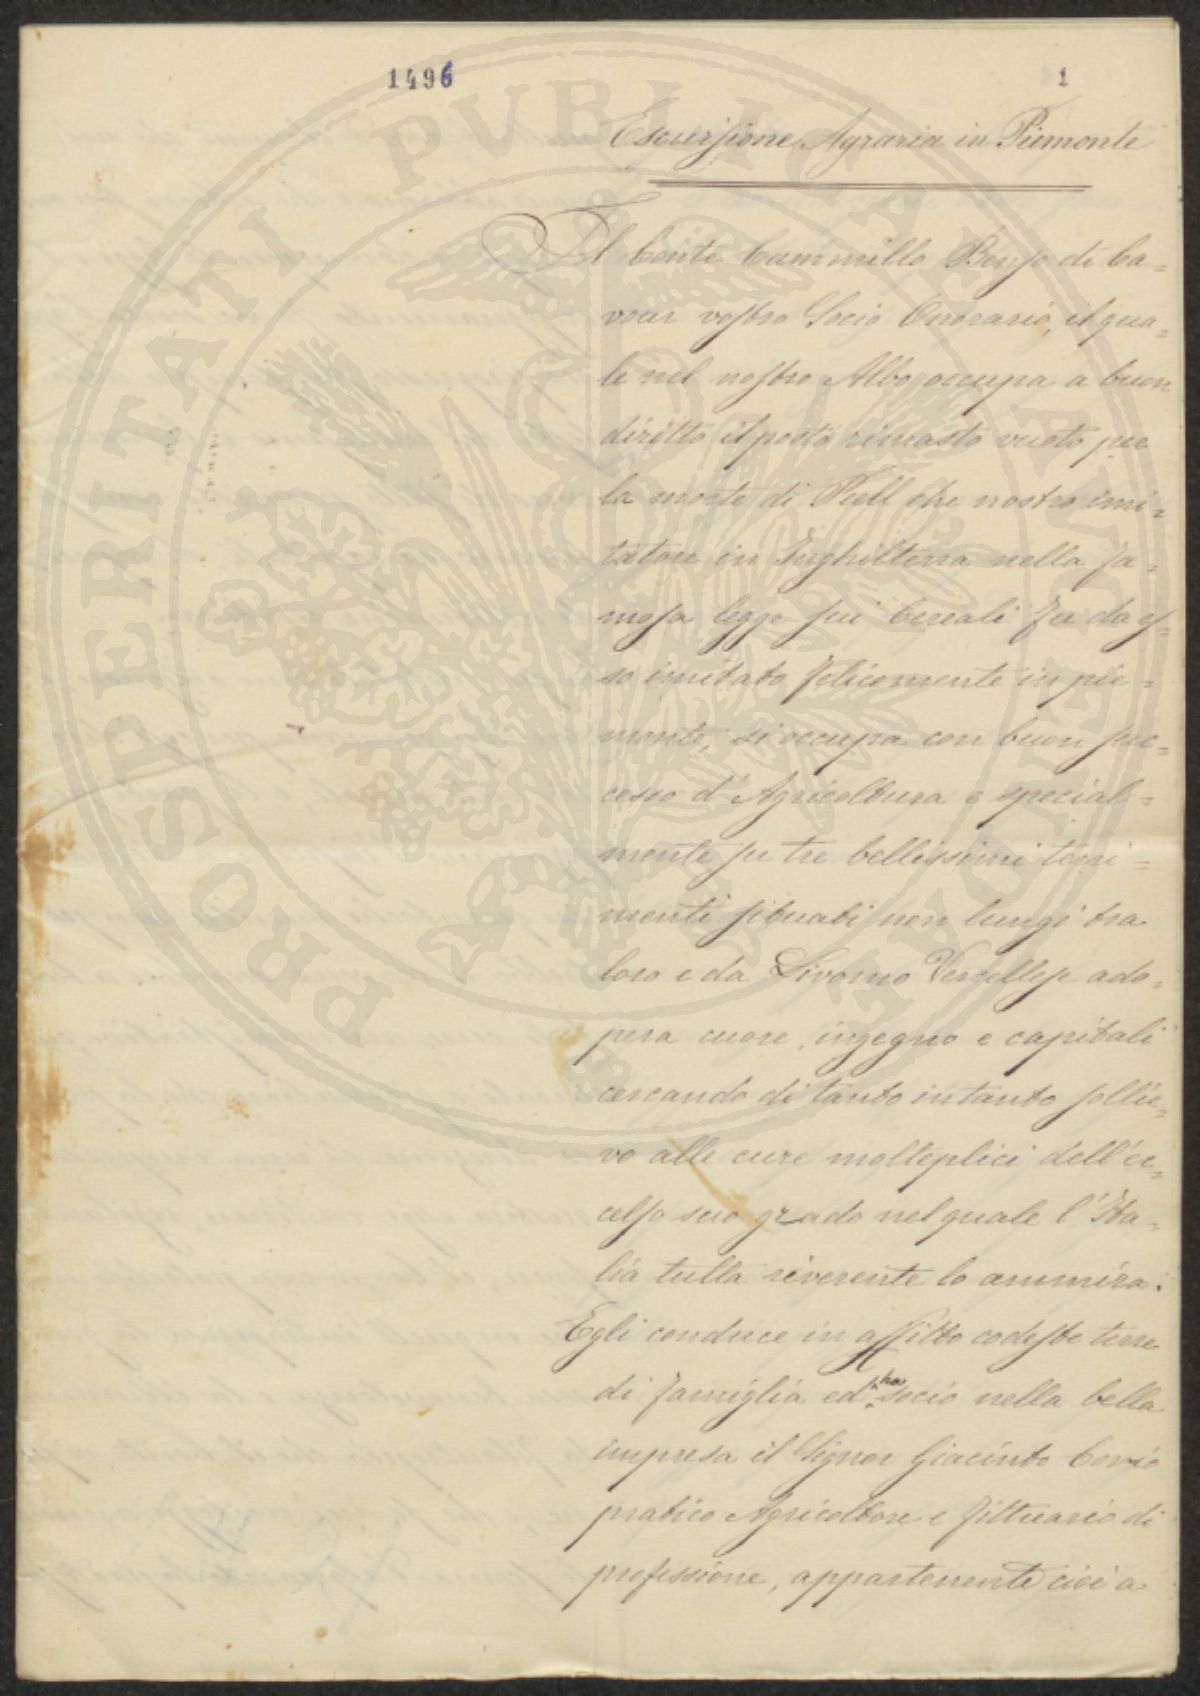 1496
1
Escursione Agraria in Piemonte
Il Conte Cammillo Benso di Ca=
vour vostro Socio Onorario, il qua=
le nel nostro Albo occupa a buon
diritto il posto rimasto vuoto per
la morte di Peell che nostro imi=
tatore in Inghilterra nella fa=
mosa legge sui Cereali fu da es=
so imitato felicemente in pie=
monte, si occupa con buon suc=
cesso d'Agricoltura e special=
mente su tre bellissimi teni=
menti situati non lungi tra
loro e da Livorno Vercellese ado=
pera cuore, ingegno e capitali
cercando di tanto in tanto sollie=
vo alle cure molteplici dell'ec=
celso suo grado nel quale l'Ita=
lia tutta riverente lo ammira.
Egli conduce in affitto codeste terre
di famiglia ed ha socio nella bella
impresa il Signor Giacinto Corio
pratico Agricoltore e fittuario di
professione, appartenente cioè a
PROSPERITATI PUBLICAE AUGENDAE